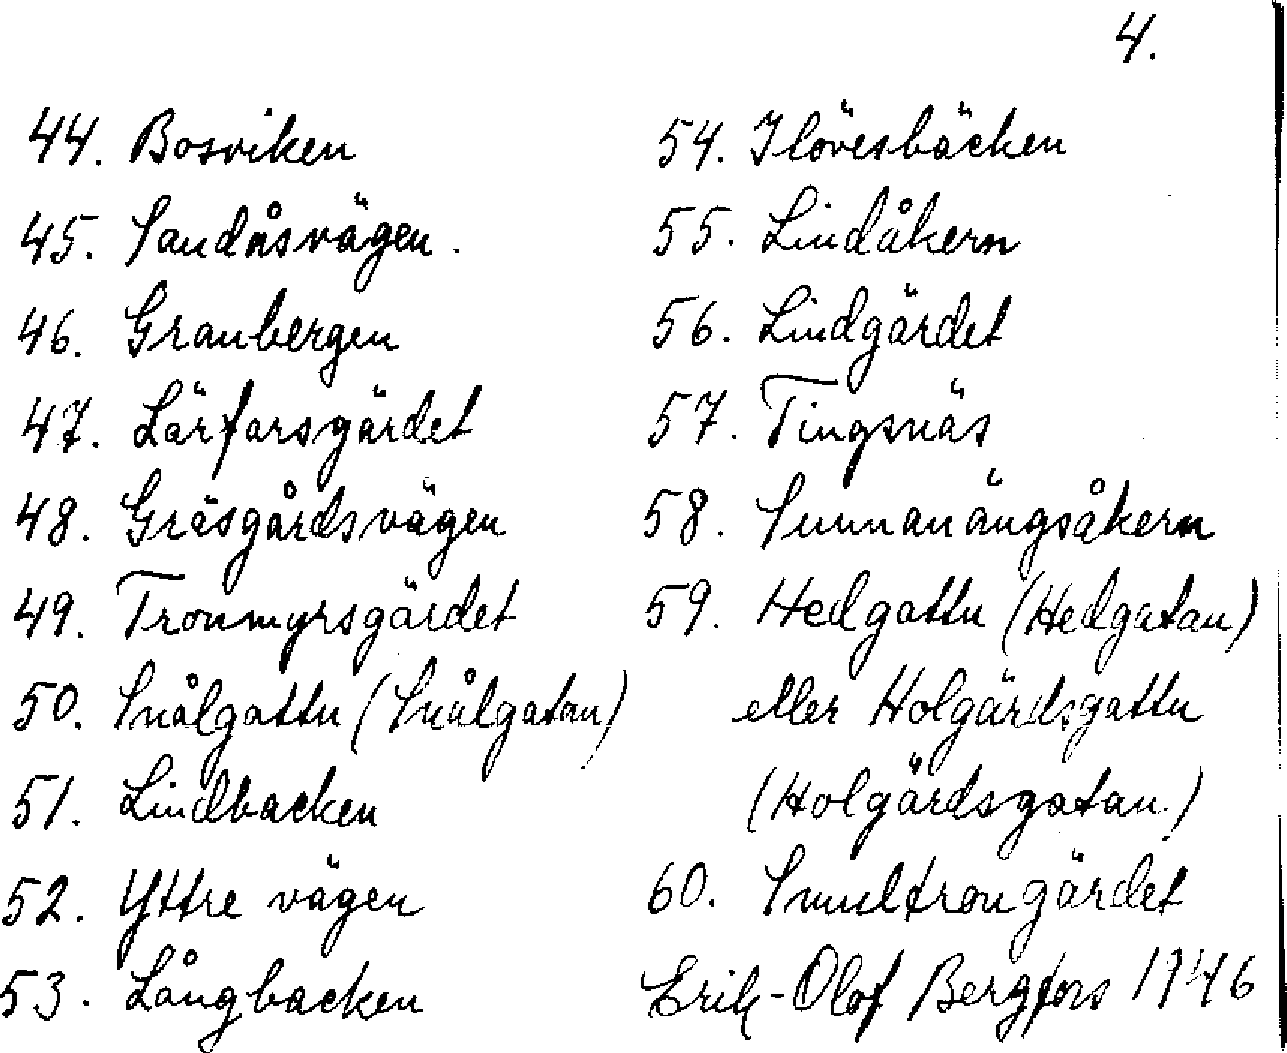 4.
44. Bosviken
45. Sandåsvägen.
46. Granbergen
47. Lärforsgärdet
48. Gräsgårdsvägen
49. Tronmyrsgärdet
50. Snålgattu (Snålgatan)
51. Lindbacken
52. Yttre vägen
53. Långbacken
54. Ilövesbäcken
55. Lindåkern
56. Lindgärdet
57. Tingsnäs
58. Sunnanängsåkern
59. Hedgattu (Hedgatan)
eller Holgärdsgattu
(Holgärdsgatan)
60. Smultrongärdet
Erik-Olof Bergfors 1946